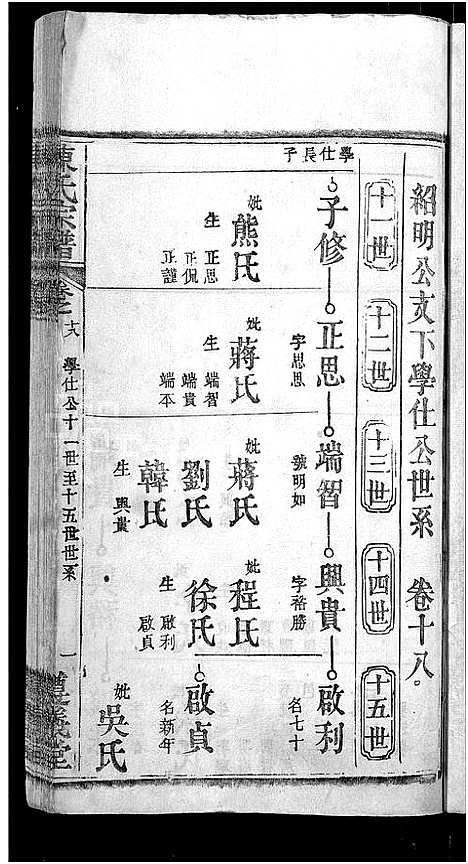 紹明公支下學仕公世系 卷十八
十一世 十二世 十三世 十四世 十五世
學仕長子
子修 正思 端智 興貴 啟利
字思思 號明如 字裕勝 名七十
妣熊氏
生 正思 正侃 正謹
妣蔣氏
生 端智 端貴 端本
妣蔣氏
劉氏
韓氏
生 興貴
妣程氏
徐氏
生 啟利 啟貞
啟貞
名新年
妣吳氏
陳氏宗譜
卷之十八 學仕公十一世至十五世世系 一
義堂